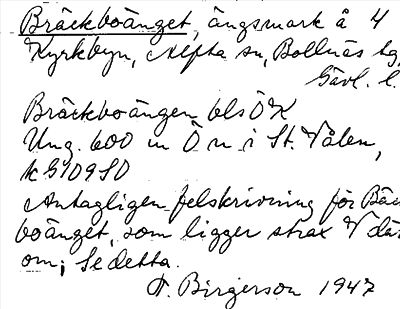 Bräckboänget, ängsmark å 4
Kyrkbyn, Alfta sn, Bollnäs tg,
Gävl. l.
Bräckboängen bls ÖK
Ung. 600 m Ö n i St. Vålen,
k G109SO
Antagligen felskrivning för Bäck
boänget, som ligger strax V där
om; Se detta.
F. Birgerson 1947